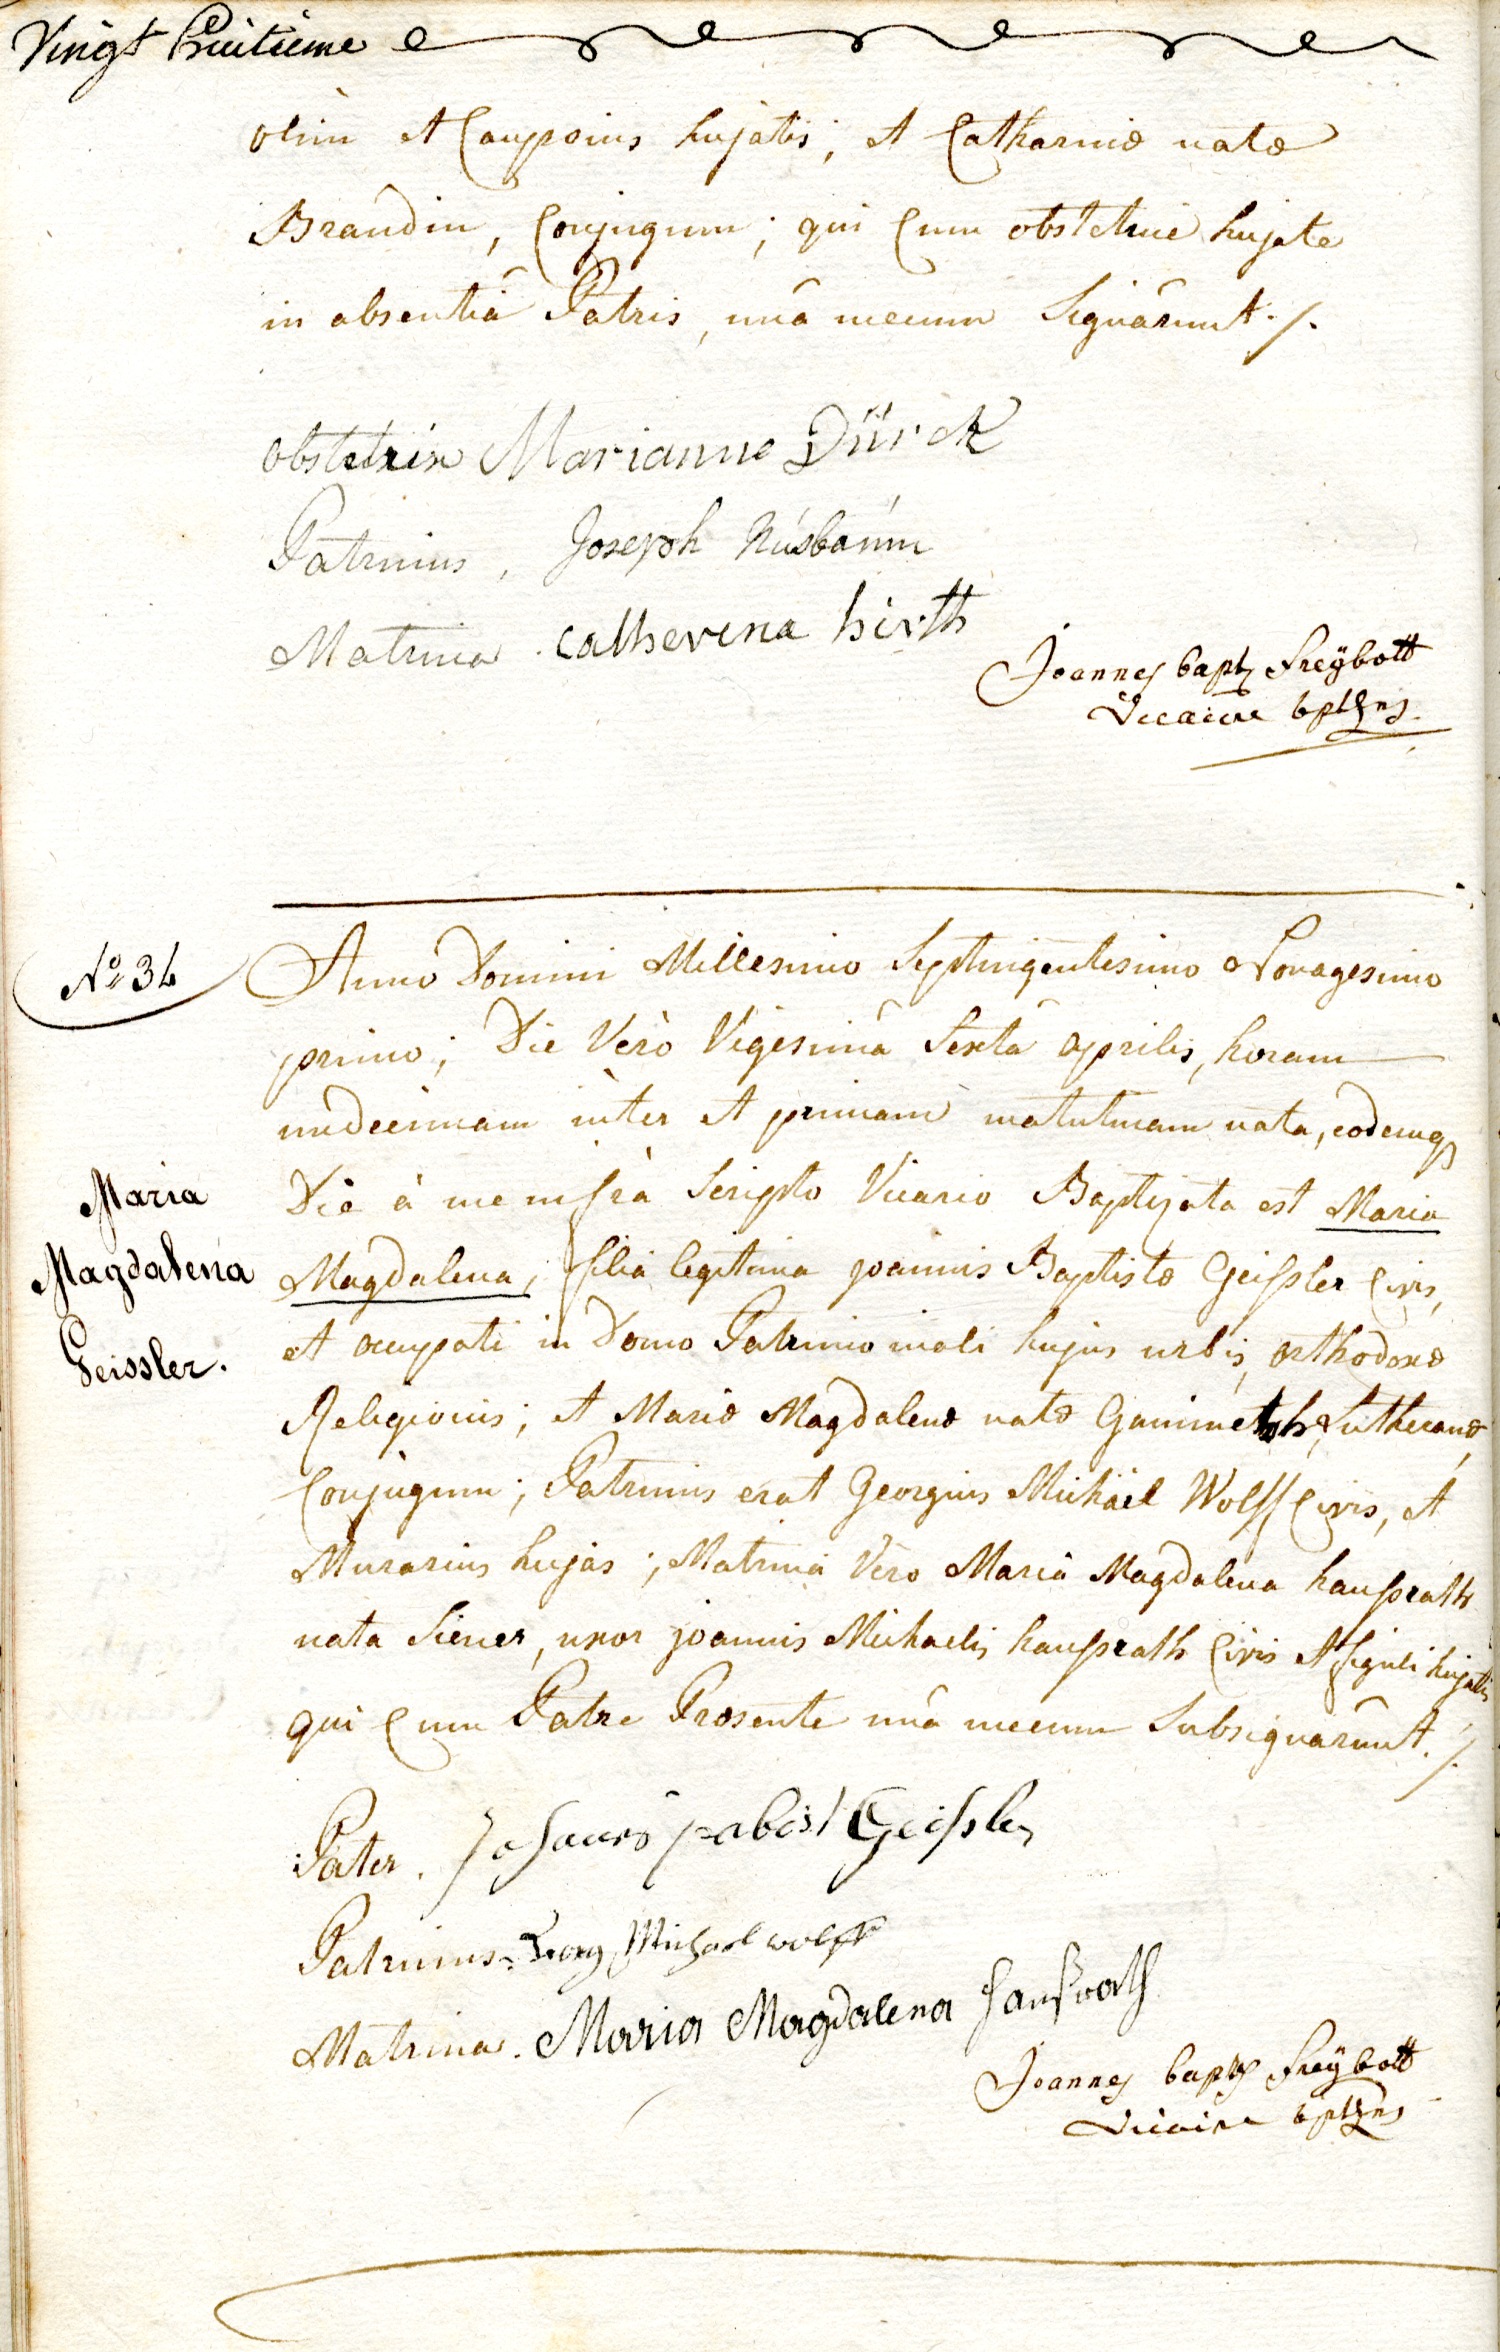 Vingt huitieme
olim et Cauponis hujatis, et Catharinæ natæ
Brandin, Conjugum; qui Cum obstetrice hujate
in absentiâ Patris, unâ mecum Signârunt ./.
Obstetrix Marianne Dürck
Patrinus, Joseph Nusbaum
Matrina. Catherina hirth
Joannes bapt Freÿbott
Vicaire bptzns
Nº 34
Anno Domini Millesimo Septingentesimo Nonagesimo
primo; Die Verò Vigesimâ Sextâ Aprilis, horam
undecimam inter et primam matutinam nata, eodemq
Die à me infra Scripto Vicario Baptizata est Maria
Magdalena, filia legitima joannis Baptistæ Geissler Civis,
et occupati in Domo Patrimoniali hujus urbis, orthodoxæ
Religionis; et Mariæ Magdalenæ natæ Lutheranæ,
Conjugum; Patrinus erat Georgius Michäel Wolff Civis, et
Murarius hujas; Matrina Vero Maria Magdalena haussrath
nata Siener, uxor joannis Michaelis haussrath Civis et figuli hujatis
qui Cum Patre Præsente unâ mecum Subsignarûnt ./.
Maria
Magdalena
Geissler.
Pater. Johanes pabist Geissler
Patrinus. Georg Michael wolff
Matrina. Maria Magdalena Haußrath
Joannes bapts Freÿbott
Vicaire bptzns